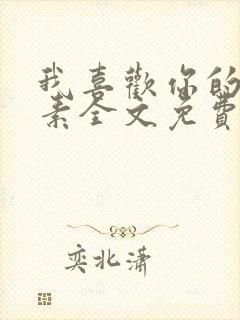 我喜歡你的
素全文免費
奕北瀟